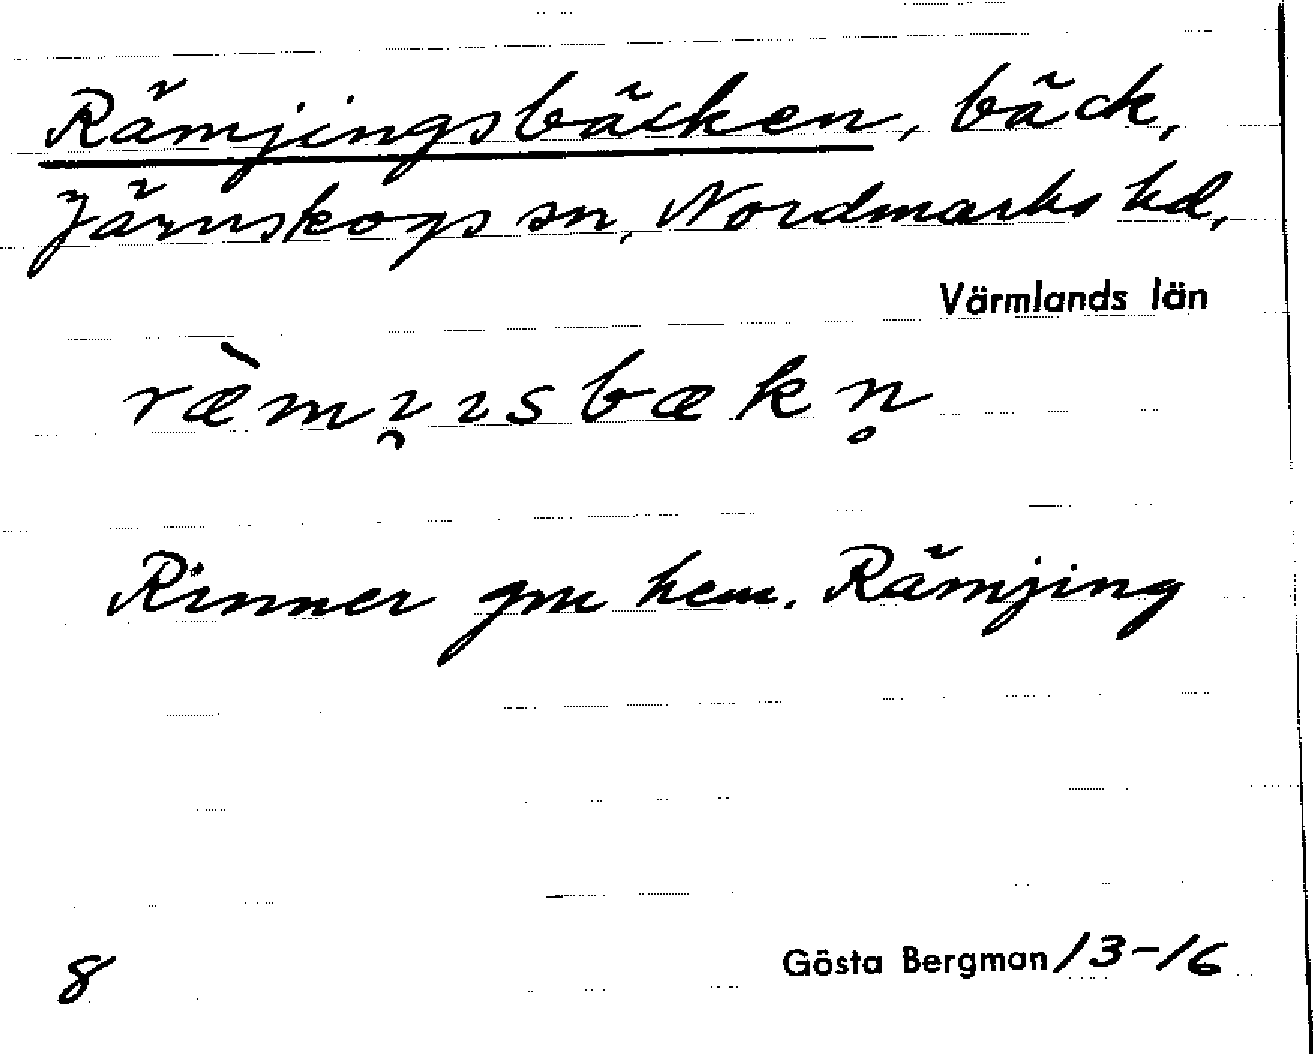 Rämjingsbäcken, bäck,
Järnskogs sn, Nordmarks hd,
Värmlands län
ræ̀mı̯ısbækn̥
Rinner gm hem. Rämjing
8 Gösta Bergman 13-16